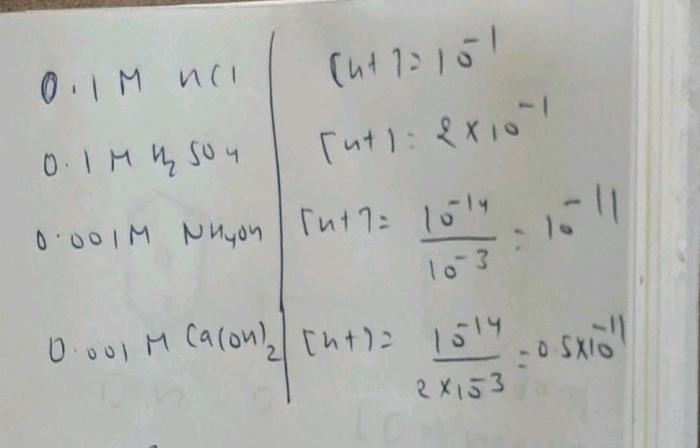 0.1 M HCl [H+] = 10^-1
0.1 M H2SO4 [H+] = 2 × 10^-1
0.001 M NH4OH [H+] = 10^-14 / 10^-3 = 10^-11
0.001 M Ca(OH)2 [H+] = 10^-14 / 2 × 10^-3 = 0.5×10^-11